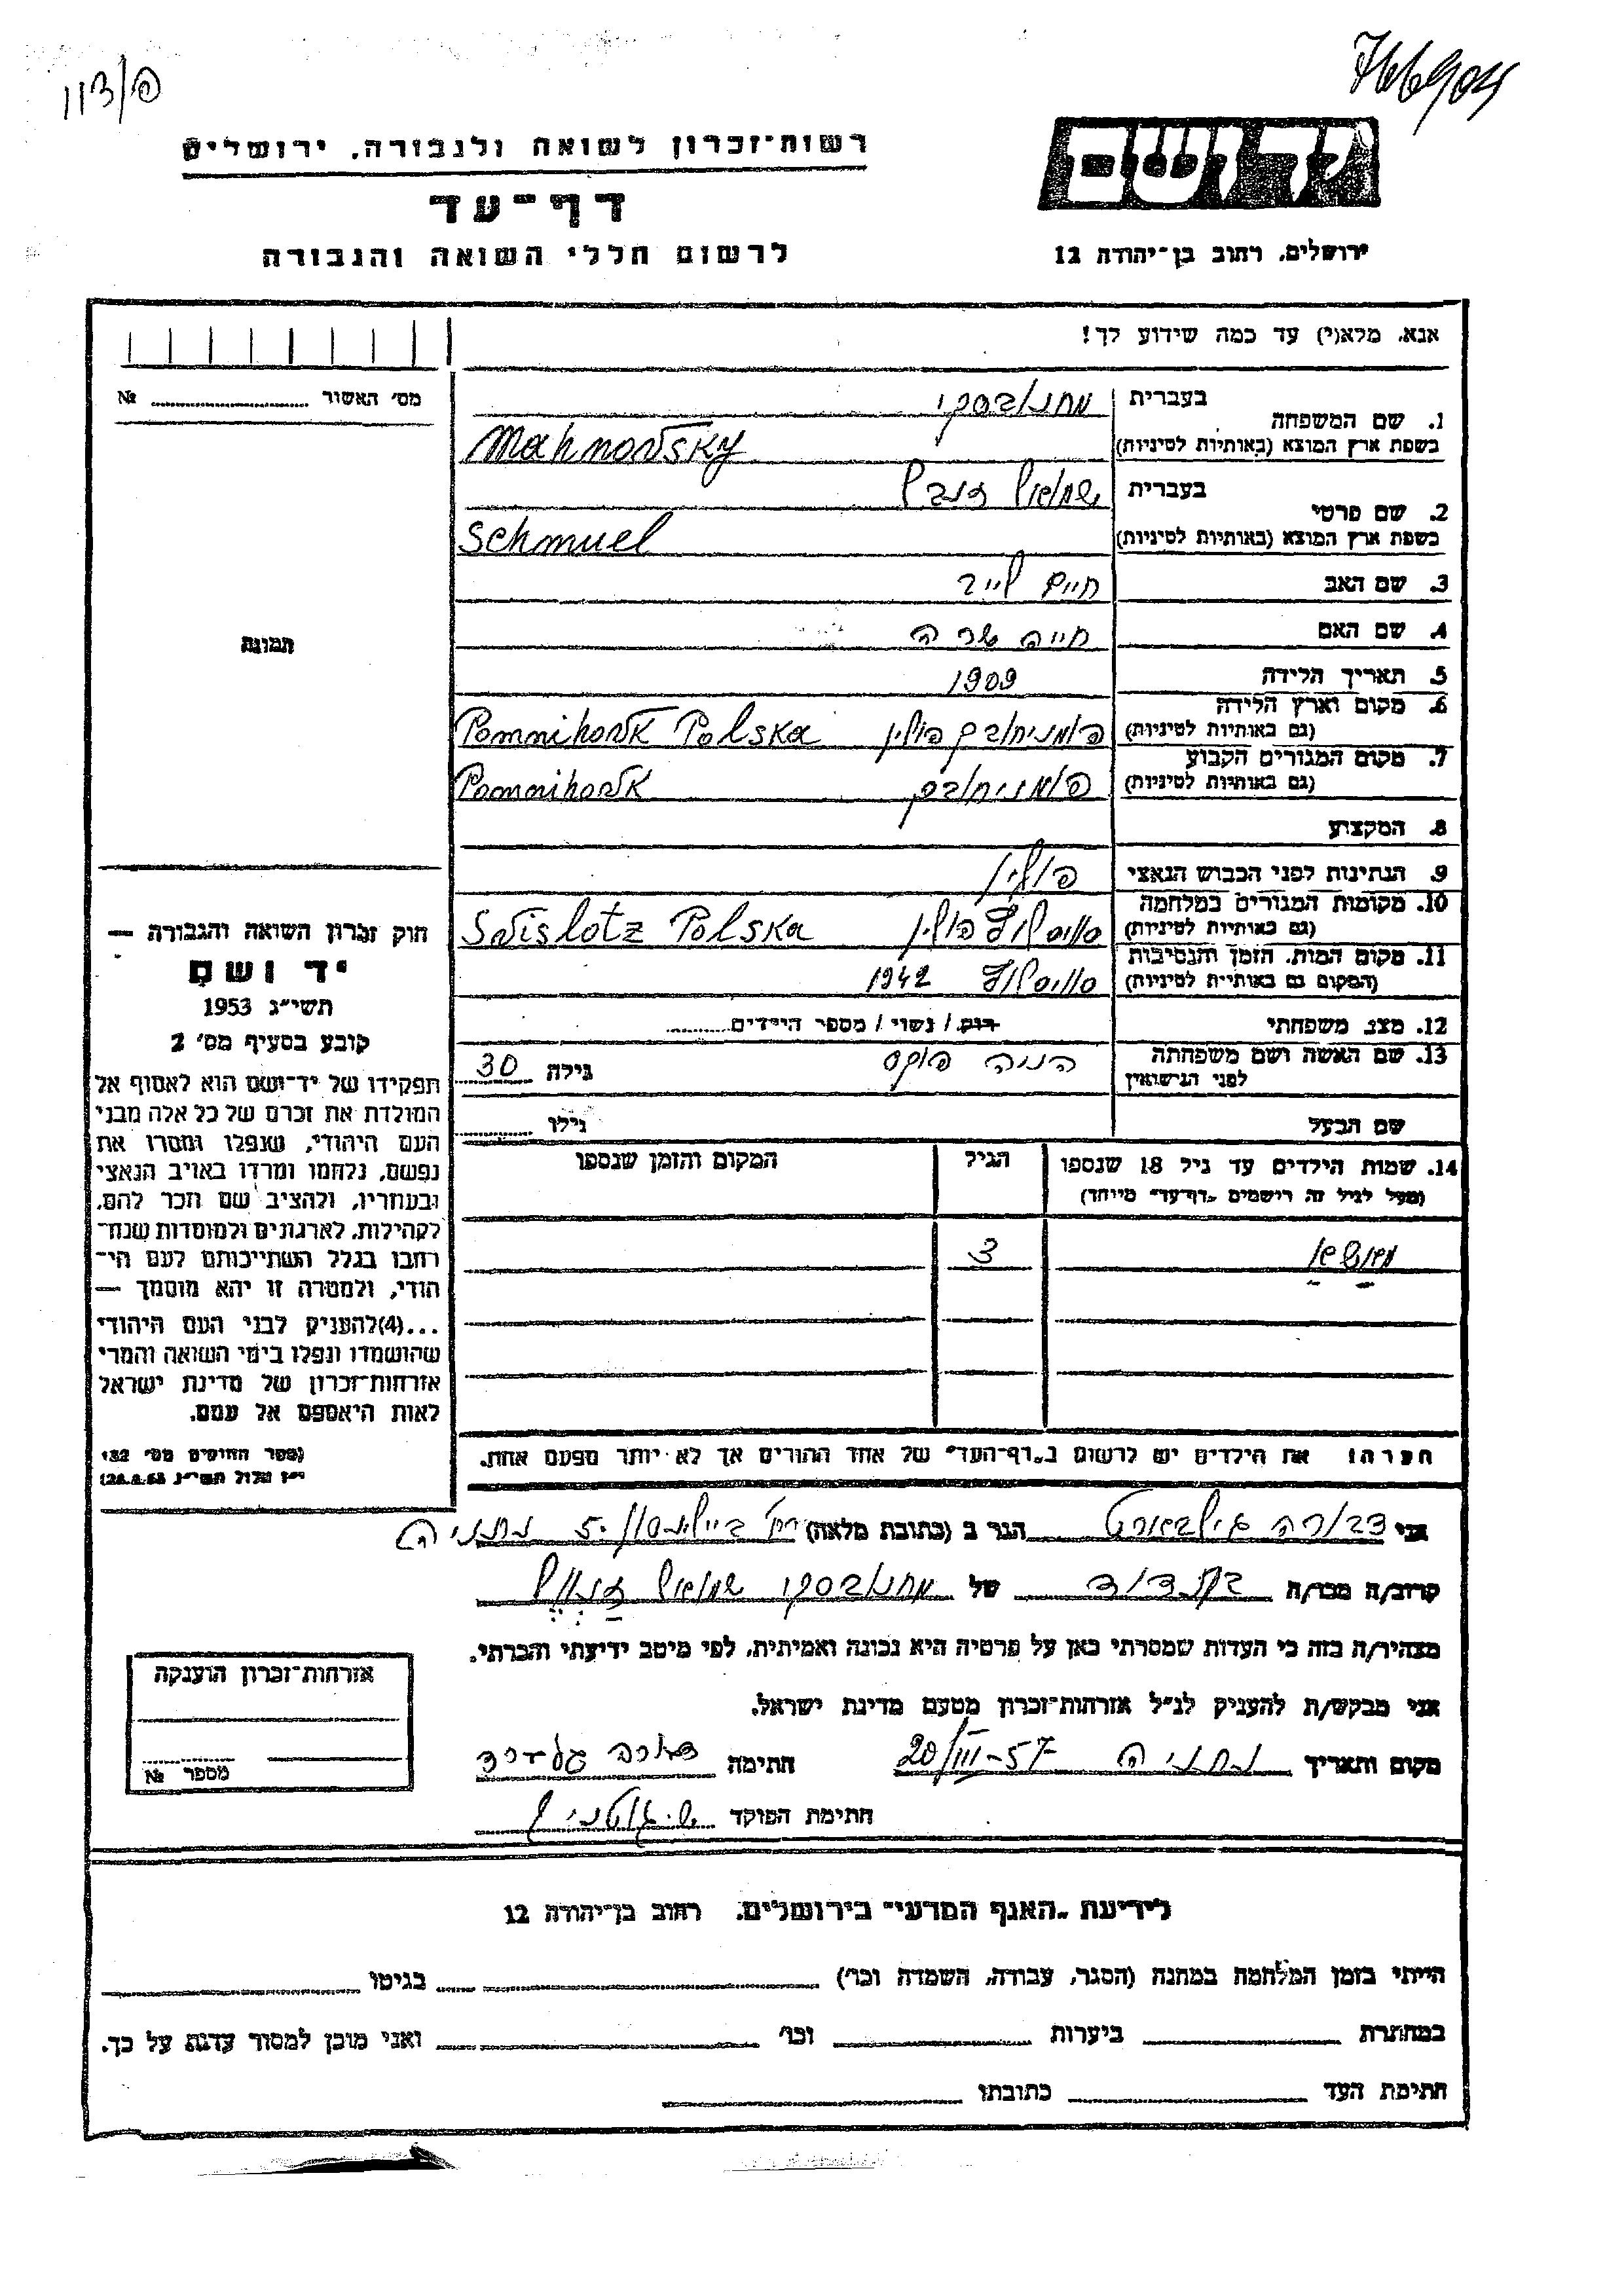 766904
פ/צוו
יד ושם
רשות־זכרון לשואה ולגבורה, ירושלים
דף־עד
לרשום חללי השואה והגבורה
ירושלים, רחוב בן־יהודה 12
אנא, מלא(י) עד כמה שידוע לך!
מס׳ האשור № 
1. שם המשפחה בעברית מחנובסקי
בשפת ארץ המוצא (באותיות לטיניות) Mahnowsky
2. שם פרטי בעברית שמואל
בשפת ארץ המוצא (באותיות לטיניות) Schmuel
3. שם האב חיים לייב
4. שם האם חיה שרה
5. תאריך הלידה 1909
6. מקום וארץ הלידה
(גם באותיות לטיניות) פולין Polska
7. מקום המגורים הקבוע
(גם באותיות לטיניות)
8. המקצוע
9. הנתינות לפני הכבוש הנאצי פולין
10. מקומות המגורים במלחמה
(גם באותיות לטיניות) סויסלוץ פולין Swislotz Polska
11. מקום המות, הזמן והנסיבות
(המקום גם באותיות לטיניות) סויסלוץ 1942
12. מצב משפחתי רווק / נשוי / מספר הילדים
13. שם האשה ושם משפחתה
לפני הנישואין הניה פוקס גילה 30
שם הבעל גילו
14. שמות הילדים עד גיל 18 שנספו הגיל המקום והזמן שנספו
(מעל לגיל זה רושמים „דף־עד״ מיוחד)
3
הערה: את הילדים יש לרשום ב„דף־העד״ של אחד ההורים אך לא יותר מפעם אחת.
תמונה
חוק זכרון השואה והגבורה —
יד ושם
תשי״ג 1953
קובע בסעיף מס׳ 2
תפקידו של יד־ושם הוא לאסוף אל
המולדת את זכרם של כל אלה מבני
העם היהודי, שנפלו ומסרו את
נפשם, נלחמו ומרדו באויב הנאצי
ובעוזריו, ולהציב שם וזכר להם,
לקהילות, לארגונים ולמוסדות שנח־
רבו בגלל השתייכותם לעם הי־
הודי, ולמטרה זו יהא מוסמך —
...(4)להעניק לבני העם היהודי
שהושמדו ונפלו בימי השואה והמרי
אזרחות־זכרון של מדינת ישראל
לאות היאספם אל עמם.
(ספר החוקים מס׳ 132
י״ז אלול תשי״ג 28.8.53)
אני דבורה הגר ב (כתובת מלאה) נתניה
קרוב/ה מכר/ה בת דוד של מחנובסקי שמואל
מצהיר/ה בזה כי העדות שמסרתי כאן על פרטיה היא נכונה ואמיתית, לפי מיטב ידיעתי והכרתי.
אני מבקש/ת להעניק לנ״ל אזרחות־זכרון מטעם מדינת ישראל.
מקום ותאריך נתניה 20/III-57 חתימה
חתימת הפוקד
אזרחות־זכרון הוענקה
מספר №
לידיעת „האגף המדעי״ בירושלים, רחוב בן־יהודה 12
הייתי בזמן המלחמה במחנה (הסגר, עבודה, השמדה וכו׳) בגיטו
במחתרת ביערות וכו׳ ואני מוכן למסור עדות על כך.
חתימת העד כתובתו